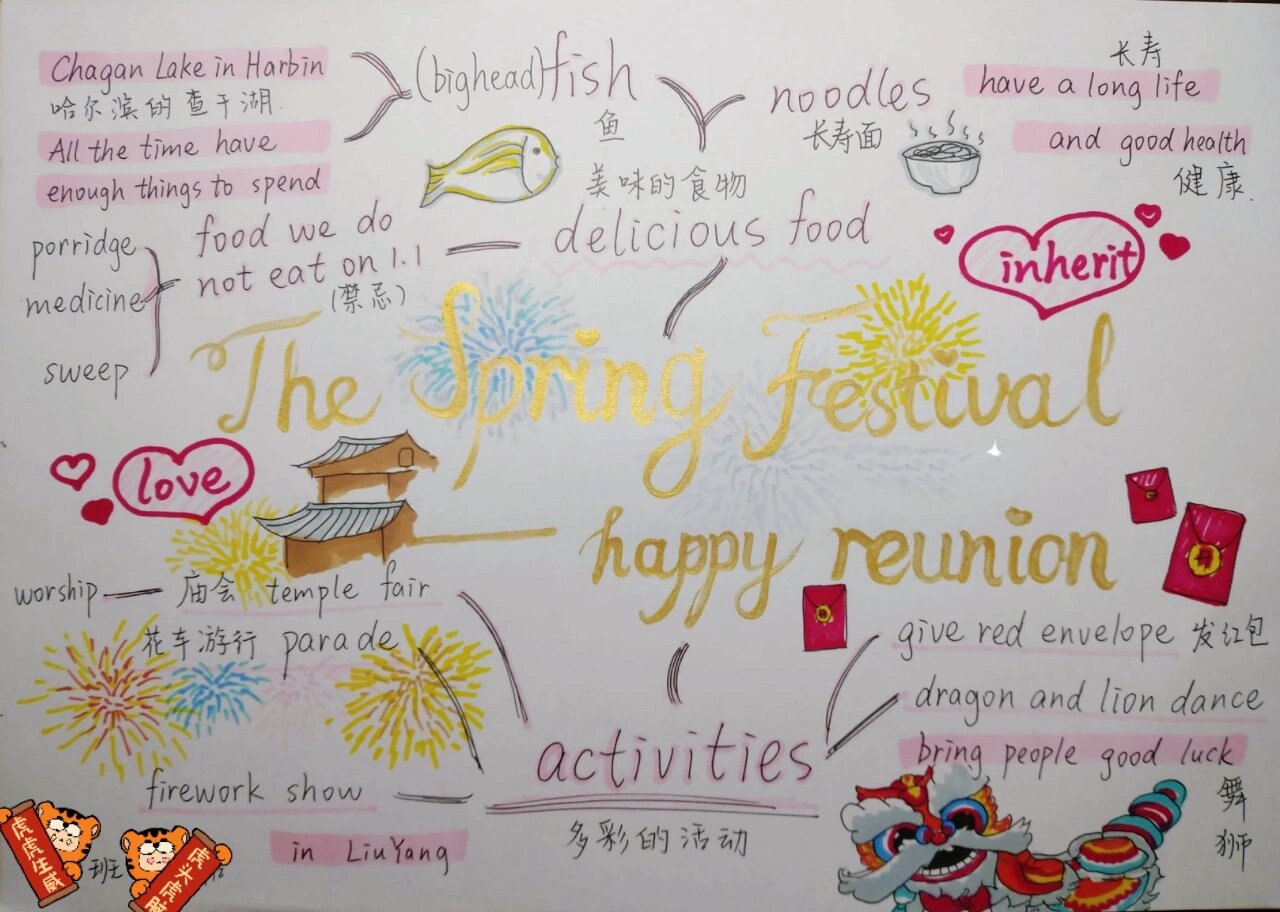 Chagan Lake in Harbin
哈尔滨的查干湖.
All the time have
enough things to spend
(bighead)fish
鱼
noodles
长寿面
长寿
have a long life
and good health
健康.
美味的食物
delicious food
food we do
not eat on 1.1
(禁忌)
porridge
medicine
sweep
inherit
The Spring Festival
love
happy reunion
worship
庙会 temple fair
花车游行 parade
give red envelope 发红包
dragon and lion dance
bring people good luck
舞
狮
activities
多彩的活动
firework show
in LiuYang
虎虎生威
班
虎头虎脑